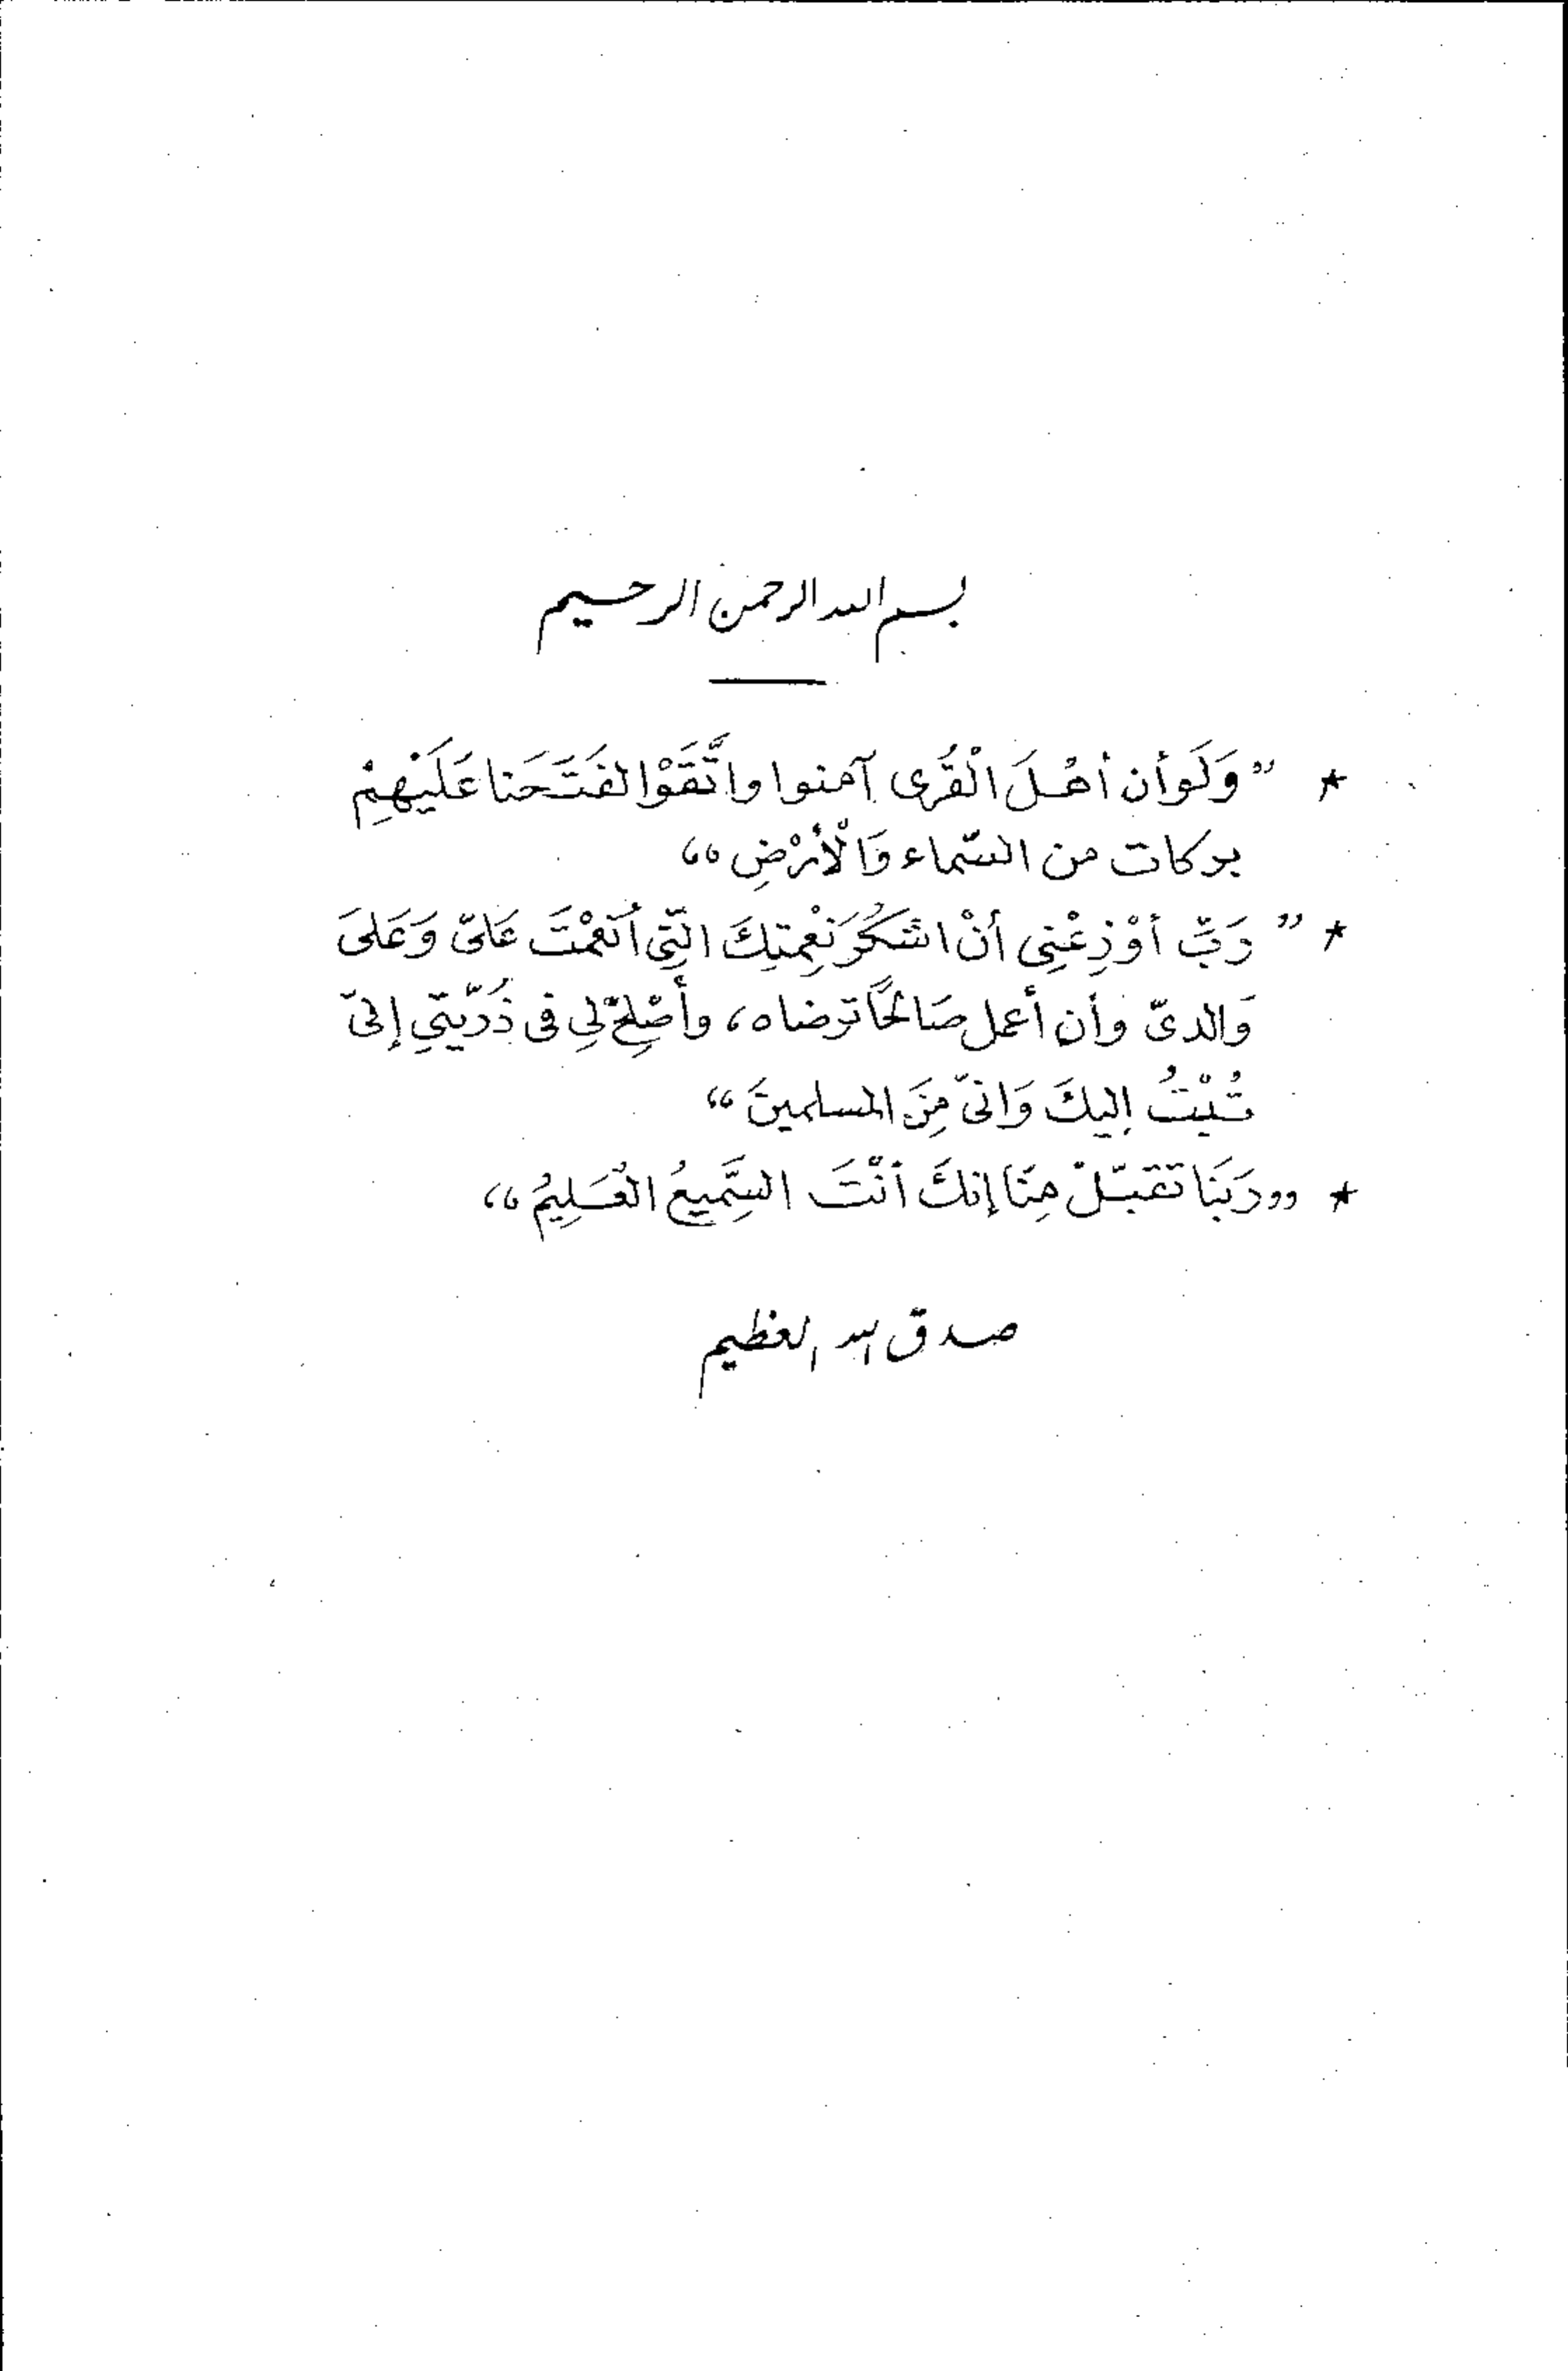 بسم الله الرحمن الرحيم
* ”وَلَوأن أهْلَ الْقُرى آمنوا واتَّقَوْا لفَتَحَنا عَلَيْهِمْ
بركات من السّماء وَالْأَرْضِ“
* ”رَبِّ أوْزِعْنِى أنْ اشكُرَ نِعْمتِكَ التِّى أنَعمْتَ عَلىّ وَعَلىَ
وَالدىّ وأن أعمل صَالحًا ترضاه، وأصْلِحْ لِى فى ذُرّيّتِي إنىّ
تُبْتُ إليكَ وَانىّ مِنَ المسلمينَ“
* ”رَبَنَا تقبّلْ مِنّا إنكَ أنْتَ السَّمِيعُ الْعَلِيمُ“
صدق الله العظيم